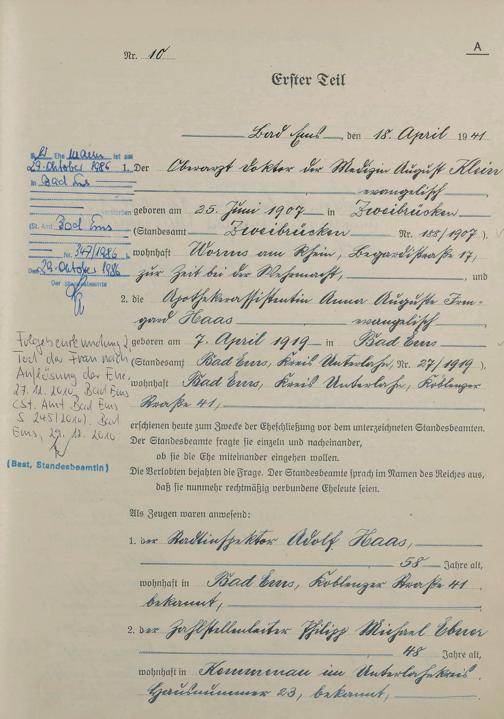 A
Nr. 10
Erster Teil
Bad Ems, den 18. April 1941
1. Der Oberarzt Doktor der Medizin August Klein
evangelisch
geboren am 25. Juni 1907 in Zweibrücken
(Standesamt Zweibrücken Nr. 188/1907)
wohnhaft Worms am Rhein, Begardistraße 17,
zur Zeit bei der Wehrmacht, und
2. die Apothekerassistentin Anna Auguste Irm-
gard Haas evangelisch
geboren am 7. April 1919 in Bad Ems
(Standesamt Bad Ems, Kreis Unterlahn, Nr. 27/1919)
wohnhaft Bad Ems, Kreis Unterlahn, Koblenzer
Straße 41,
erschienen heute zum Zwecke der Eheschließung vor dem unterzeichneten Standesbeamten.
Der Standesbeamte fragte sie einzeln und nacheinander,
ob sie die Ehe miteinander eingehen wollen.
Die Verlobten bejahten die Frage. Der Standesbeamte sprach im Namen des Reiches aus,
daß sie nunmehr rechtmäßig verbundene Eheleute seien.
Als Zeugen waren anwesend:
1. der Stadtinspektor Adolf Haas,
58 Jahre alt,
wohnhaft in Bad Ems, Koblenzer Straße 41
bekannt,
2. der Zahlstellenleiter Philipp Michael Ebner
48 Jahre alt,
wohnhaft in Kemmenau im Unterlahnkreis
Hausnummer 23, bekannt,
Ehemann ist am
29. Oktober 1986
in Bad Ems
verstorben
(St. Amt Bad Ems
Nr. 347/1986
Den 29. Oktober 1986
Der Standesbeamte
Folgebeurkundung 2
Tod der Frau nach
Auflösung der Ehe,
27.12.2010, Bad Ems
(St. Amt Bad Ems
S 245/2010). Bad
Ems, 29.12.2010
(Best, Standesbeamtin)